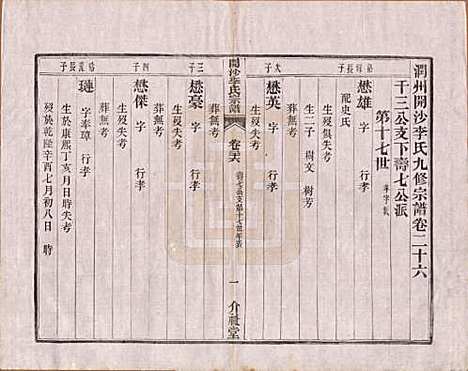 潤州開沙李氏九修宗譜卷二十六
千三公支下壽七公派
第十七世
長子
懋雄 字 行孝
配史氏
生歿俱失考
葬無考
次子
懋英 字 行孝
生二子 樹文 樹尚
生歿失考
葬無考
三子
懋豪 字 行孝
生歿失考
葬無考
開沙李氏宗譜
卷二十六
一 介祉堂
四子
懋傑 字 行孝
生歿失考
葬無考
長子
璉 字奉璋 行孝
生於康熙丁亥月日時失考
歿於乾隆辛酉七月初八日 時